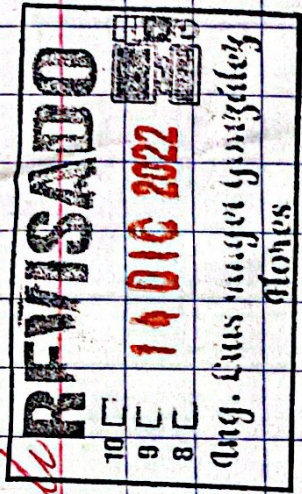 REVISADO
10
9 14 DIC 2022
8
Ing. Luis Angel González
Flores